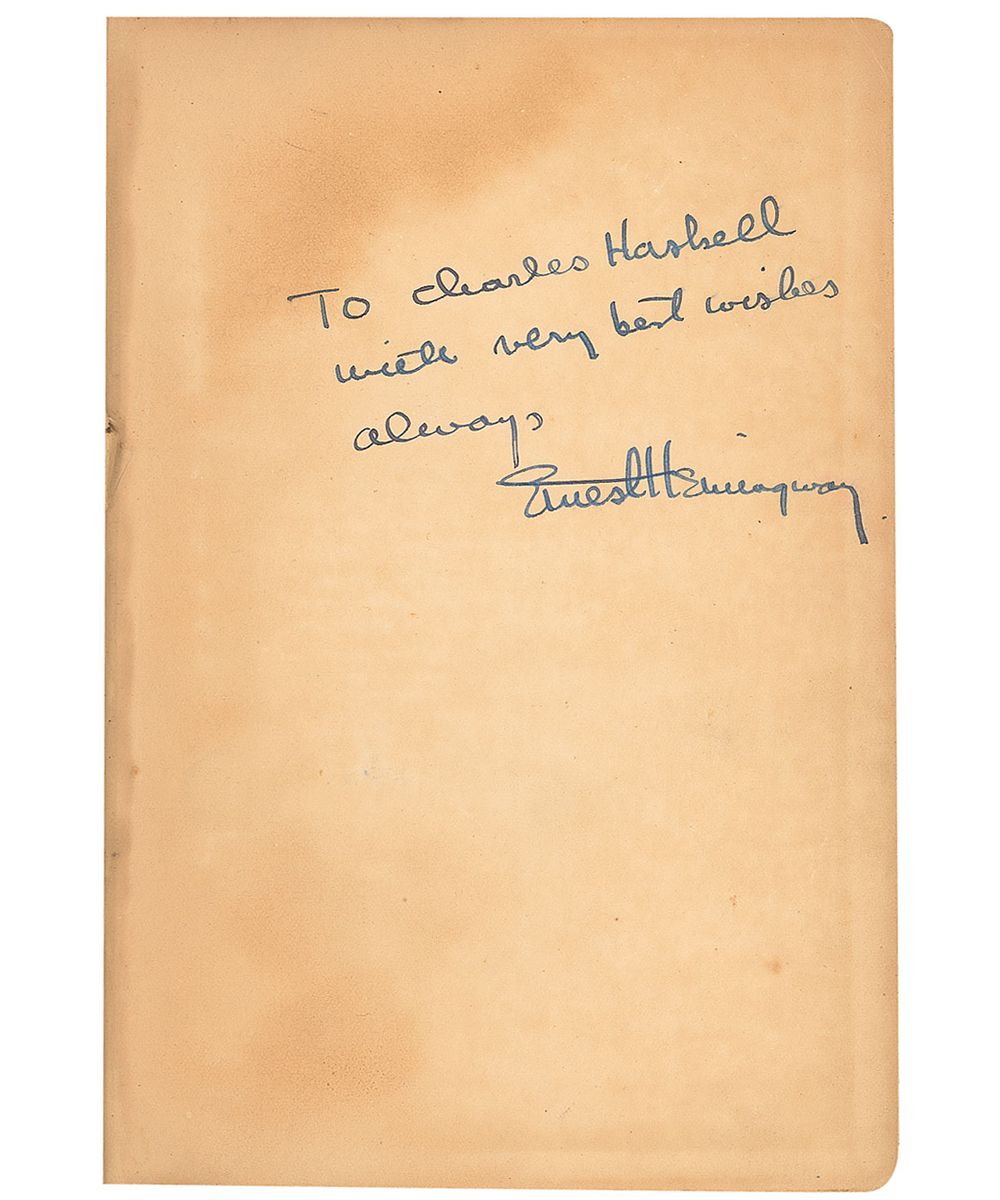 To Charles Haskell
with very best wishes
always
Ernest Hemingway